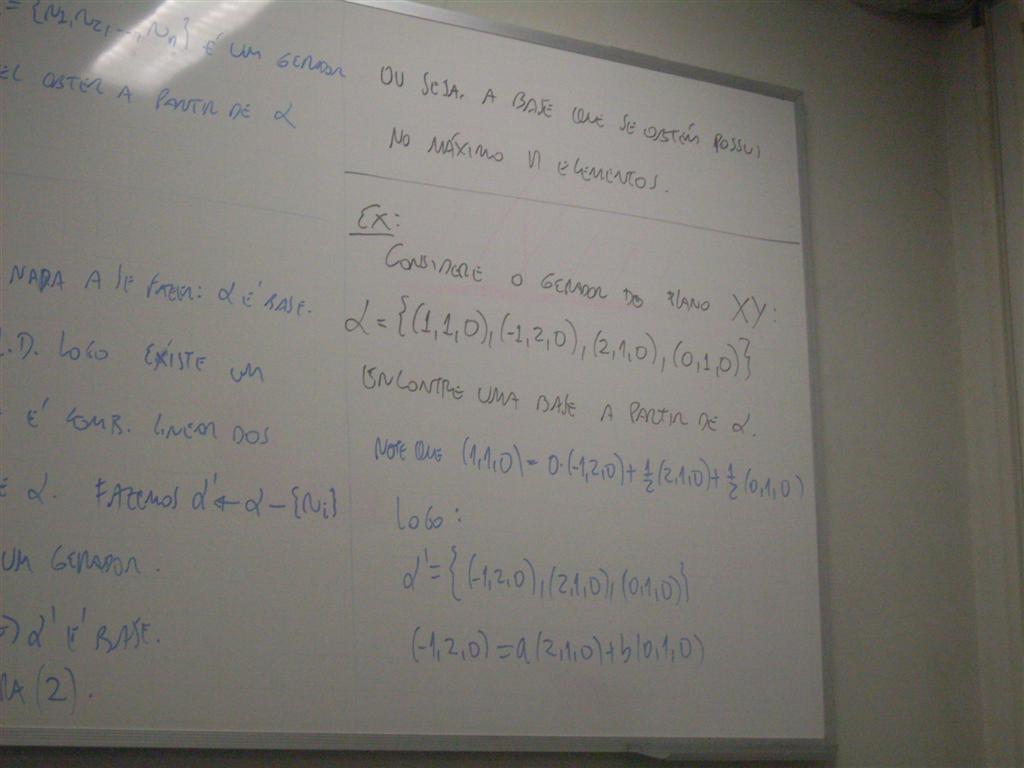 = {v1, v2, ..., vn} É UM GERADOR
EL OBTER A PARTIR DE α
NADA A SE FAZER: α É BASE.
L.D. LOGO EXISTE UM
É COMB. LINEAR DOS
E α. FAZEMOS α' ← α - {vi}
UM GERADOR.
α' É BASE.
RA (2).
OU SEJA, A BASE QUE SE OBTÉM POSSUI
NO MÁXIMO n ELEMENTOS.
EX:
CONSIDERE O GERADOR DO PLANO XY:
α = {(1,1,0), (-1,2,0), (2,1,0), (0,1,0)}
ENCONTRE UMA BASE A PARTIR DE α.
NOTE QUE (1,1,0) = 0·(-1,2,0) + 1/2 (2,1,0) + 1/2 (0,1,0)
LOGO:
α' = {(-1,2,0), (2,1,0), (0,1,0)}
(-1,2,0) = a(2,1,0) + b(0,1,0)